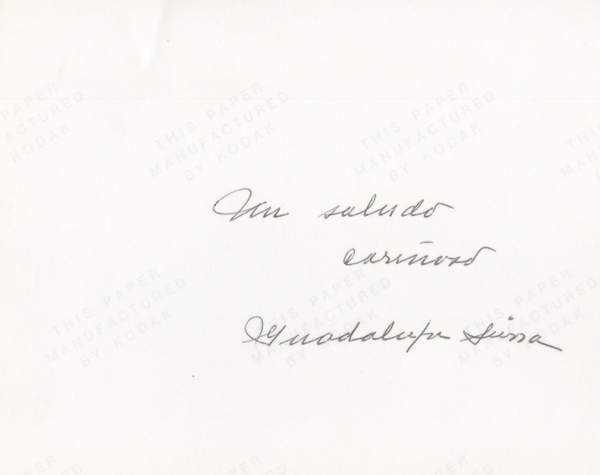 THIS PAPER
MANUFACTURED
BY KODAK
THIS PAPER
MANUFACTURED
BY KODAK
THIS PAPER
MANUFACTURED
BY KODAK
Un saludo
cariñoso
THIS PAPER
MANUFACTURED
BY KODAK
THIS PAPER
MANUFACTURED
BY KODAK
THIS PAPER
MANUFACTURED
BY KODAK
Guadalupe Sierra